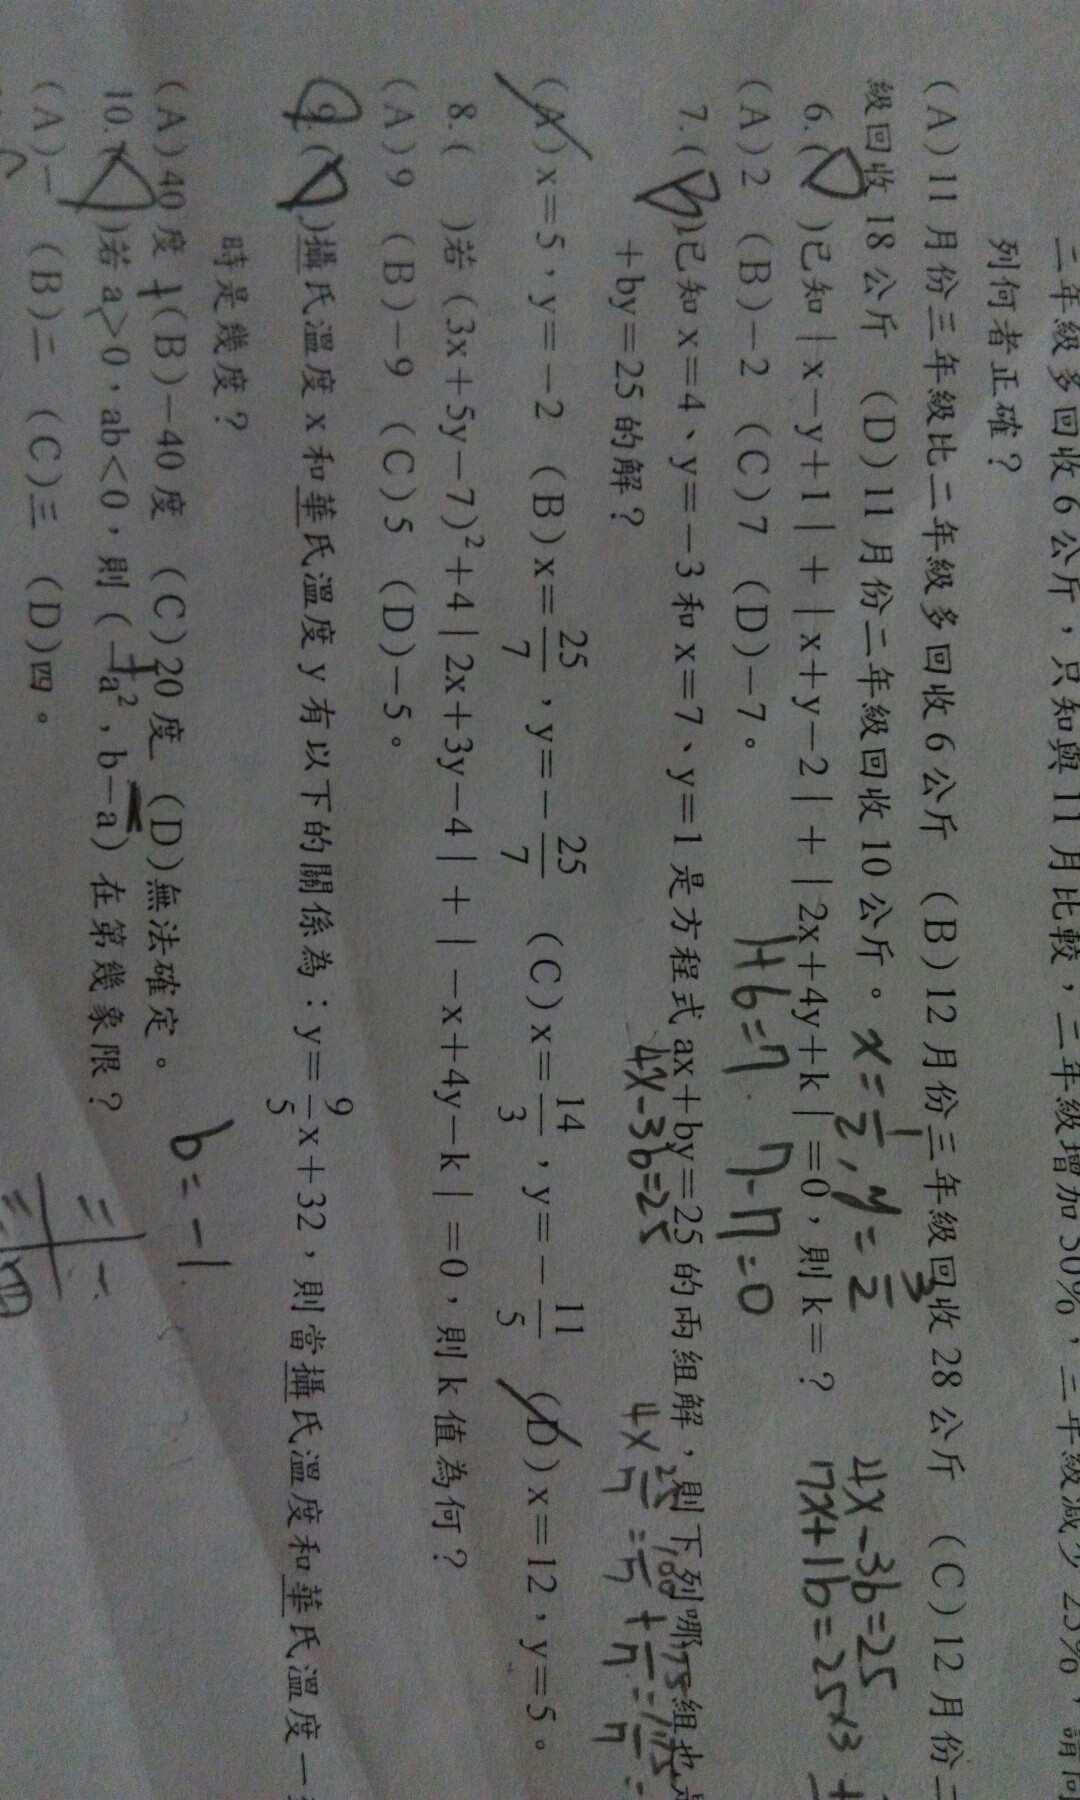 二年級多回收6公斤，只知與11月比較，三年級增加50%，二年級減少25%，請問
列何者正確？
(A)11月份三年級比二年級多回收6公斤 (B)12月份三年級回收28公斤 (C)12月份二
級回收18公斤 (D)11月份二年級回收10公斤。
x=1/2, y=3/2
4x-3b=25
7x+1b=25x3
6.( D )已知|x-y+1|+|x+y-2|+|2x+4y+k|=0，則k=？
(A)2 (B)-2 (C)7 (D)-7。
1+6=7 7-7=0
7.( B )已知x=4、y=-3和x=7、y=1是方程式ax+by=25的兩組解，則下列哪一組也是
+by=25的解？
4x-3b=25
(A)x=5，y=-2 (B)x=25/7，y=-25/7 (C)x=14/3，y=-11/5 (D)x=12，y=5。
8.( )若(3x+5y-7)²+4|2x+3y-4|+|-x+4y-k|=0，則k值為何？
(A)9 (B)-9 (C)5 (D)-5。
9.( D )攝氏溫度x和華氏溫度y有以下的關係為：y=9/5x+32，則當攝氏溫度和華氏溫度一
時是幾度？
(A)40度 (B)-40度 (C)20度 (D)無法確定。
b=-1
10.( )若a>0，ab<0，則(-a²，b-a)在第幾象限？
(A)一 (B)二 (C)三 (D)四。
二 一
三 四